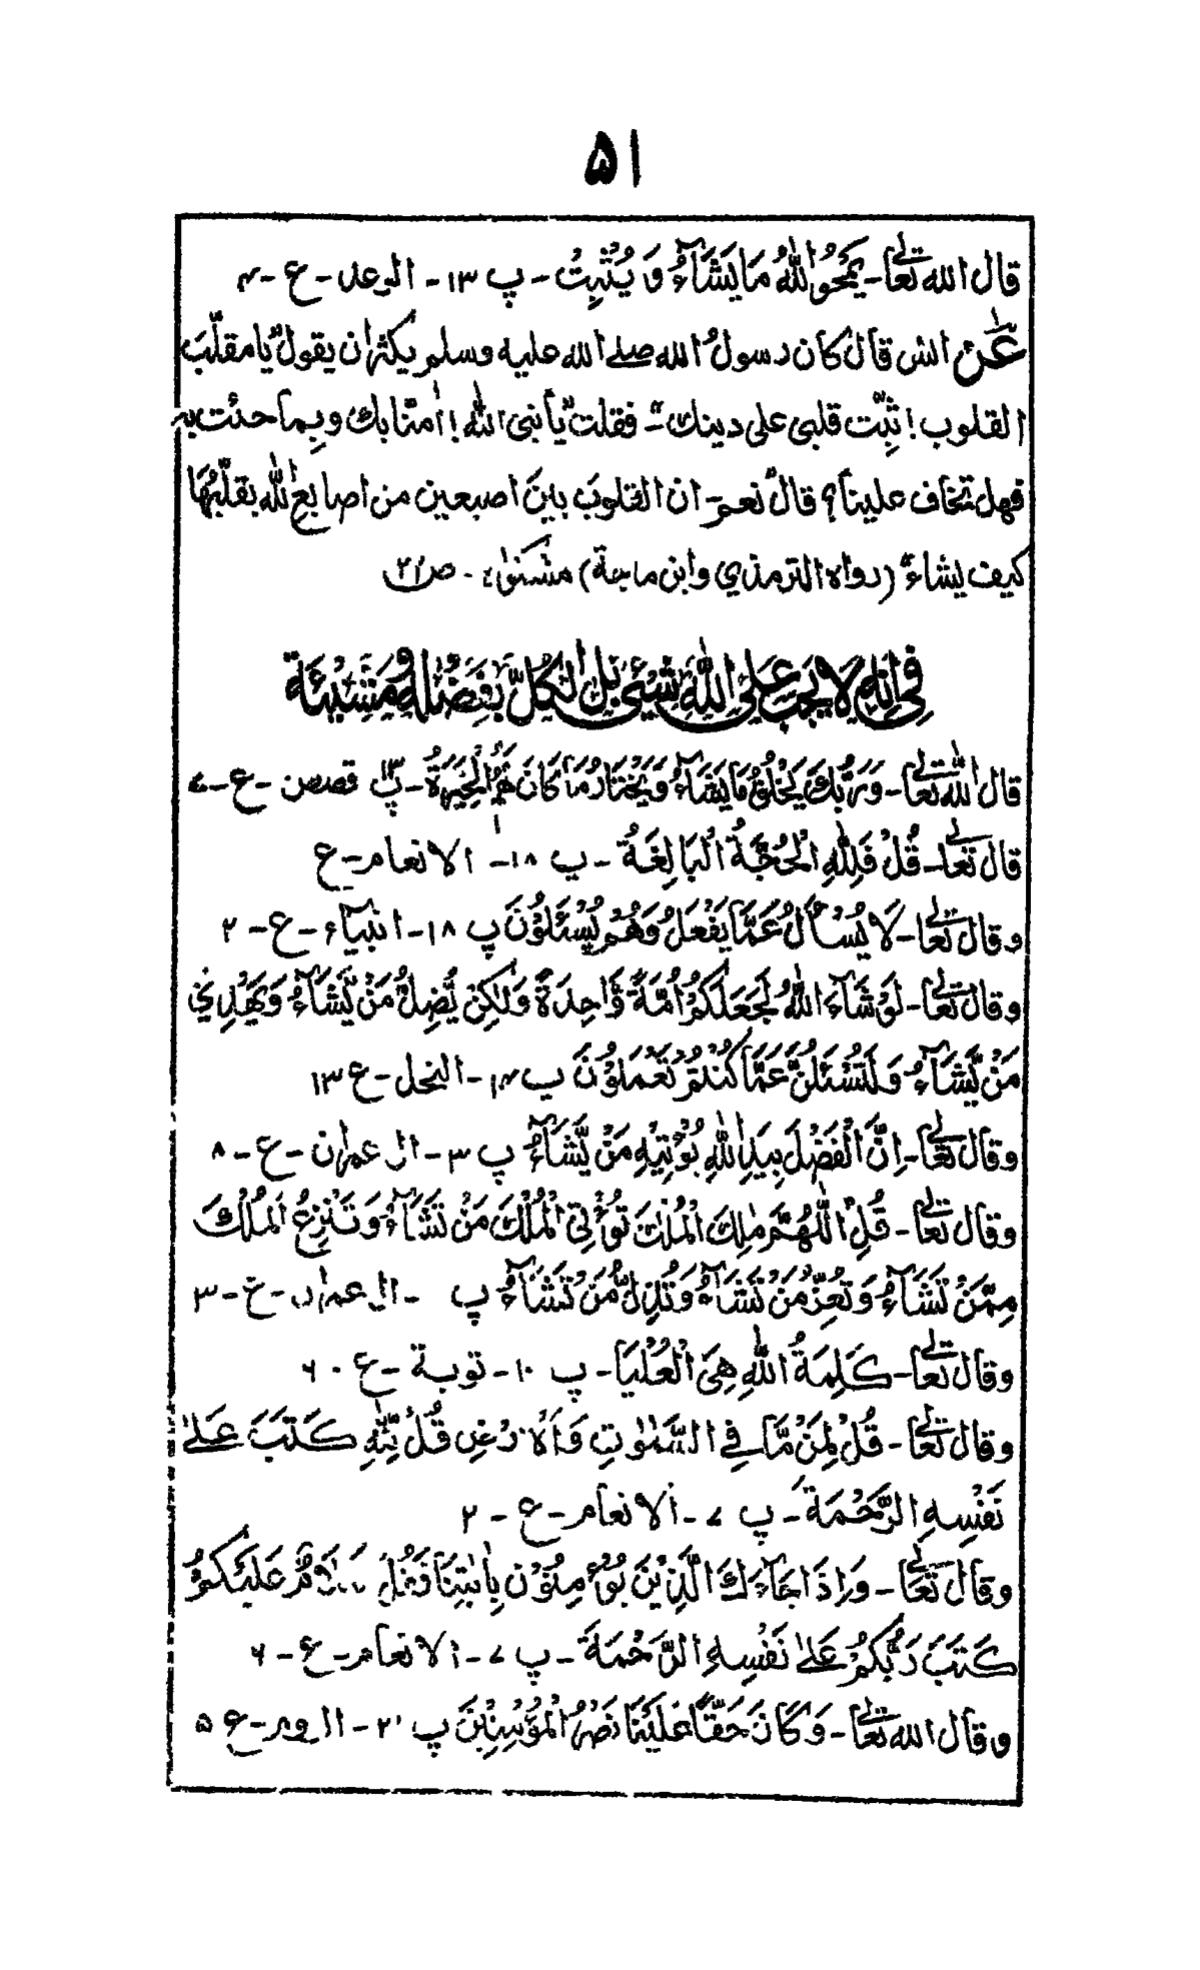 ۵۱
قال الله تعالیٰ - یَمْحُوا اللّٰهُ مَا یَشَآءُ وَ یُثْبِتُ - پ ۱۳ - الرعد - ع - ۴
عَنْ انس قال کان رسول الله صلے الله علیه وسلم یکثر ان یقول یا مقلّبَ
القلوب! ثبِّت قلبی علی دینك - فقلت یا نبی اللّٰه! اٰمنّا بك وبِما جئت به
فهل تخاف علینا؟ قال نعم - ان القلوبَ بینَ اصبعین من اصابع اللّٰه یقلّبُهَا
کیف یشاء (رواه الترمذي وابن ماجة) مشکوٰة - ص ۲۱
فِی اَنَّهٗ لَا یَجِبُ عَلَی اللّٰهِ شَیْئٌ بَلِ الْکُلُّ بِفَضْلِهٖ وَمَشِیْئَةٍ
قال اللّٰه تعالیٰ - وَرَبُّكَ یَخْلُقُ مَا یَشَآءُ وَیَخْتَارُ مَا کَانَ لَهُمُ الْخِیَرَةُ - پ قصص - ع -
قال تعالیٰ - قُلْ فَلِلّٰهِ الْحُجَّةُ الْبَالِغَةُ - پ ۱۸ - الانعام - ع
وقال تعالیٰ - لَا یُسْأَلُ عَمَّا یَفْعَلُ وَهُمْ یُسْئَلُوْنَ پ ۱۸ - انبیآء - ع - ۲
وقال تعالیٰ - لَوْ شَآءَ اللّٰهُ لَجَعَلَکُمْ اُمَّةً وَّاحِدَةً وَّلٰکِنْ یُّضِلُّ مَنْ یَّشَآءُ وَیَهْدِیْ
مَنْ یَّشَآءُ وَلَتُسْئَلُنَّ عَمَّا کُنْتُمْ تَعْمَلُوْنَ پ ۱۴ - النحل - ع ۱۳
وقال تعالیٰ - اِنَّ الْفَضْلَ بِیَدِ اللّٰهِ یُؤْتِیْهِ مَنْ یَّشَآءُ پ ۳ - اٰل عمران - ع - ۸
وقال تعالیٰ - قُلِ اللّٰهُمَّ مٰلِكَ الْمُلْكِ تُؤْتِی الْمُلْكَ مَنْ تَشَآءُ وَتَنْزِعُ الْمُلْكَ
مِمَّنْ تَشَآءُ وَتُعِزُّ مَنْ تَشَآءُ وَتُذِلُّ مَنْ تَشَآءُ پ - اٰل عمران - ع - ۳
وقال تعالیٰ - کَلِمَةُ اللّٰهِ هِیَ الْعُلْیَا - پ ۱۰ - توبة - ع - ۶
وقال تعالیٰ - قُلْ لِمَنْ مَّا فِی السَّمٰوٰتِ وَالْاَرْضِ قُلْ لِّلّٰهِ کَتَبَ عَلٰی
نَفْسِهِ الرَّحْمَةَ - پ ۷ - الانعام - ع - ۲
وقال تعالیٰ - وَاِذَا جَآءَكَ الَّذِیْنَ یُؤْمِنُوْنَ بِاٰیٰتِنَا فَقُلْ سَلٰمٌ عَلَیْکُمْ
کَتَبَ رَبُّکُمْ عَلٰی نَفْسِهِ الرَّحْمَةَ - پ ۷ - الانعام - ع - ۶
وقال الله تعالیٰ - وَکَانَ حَقًّا عَلَیْنَا نَصْرُ الْمُؤْمِنِیْنَ پ ۲۱ - الروم - ع ۵